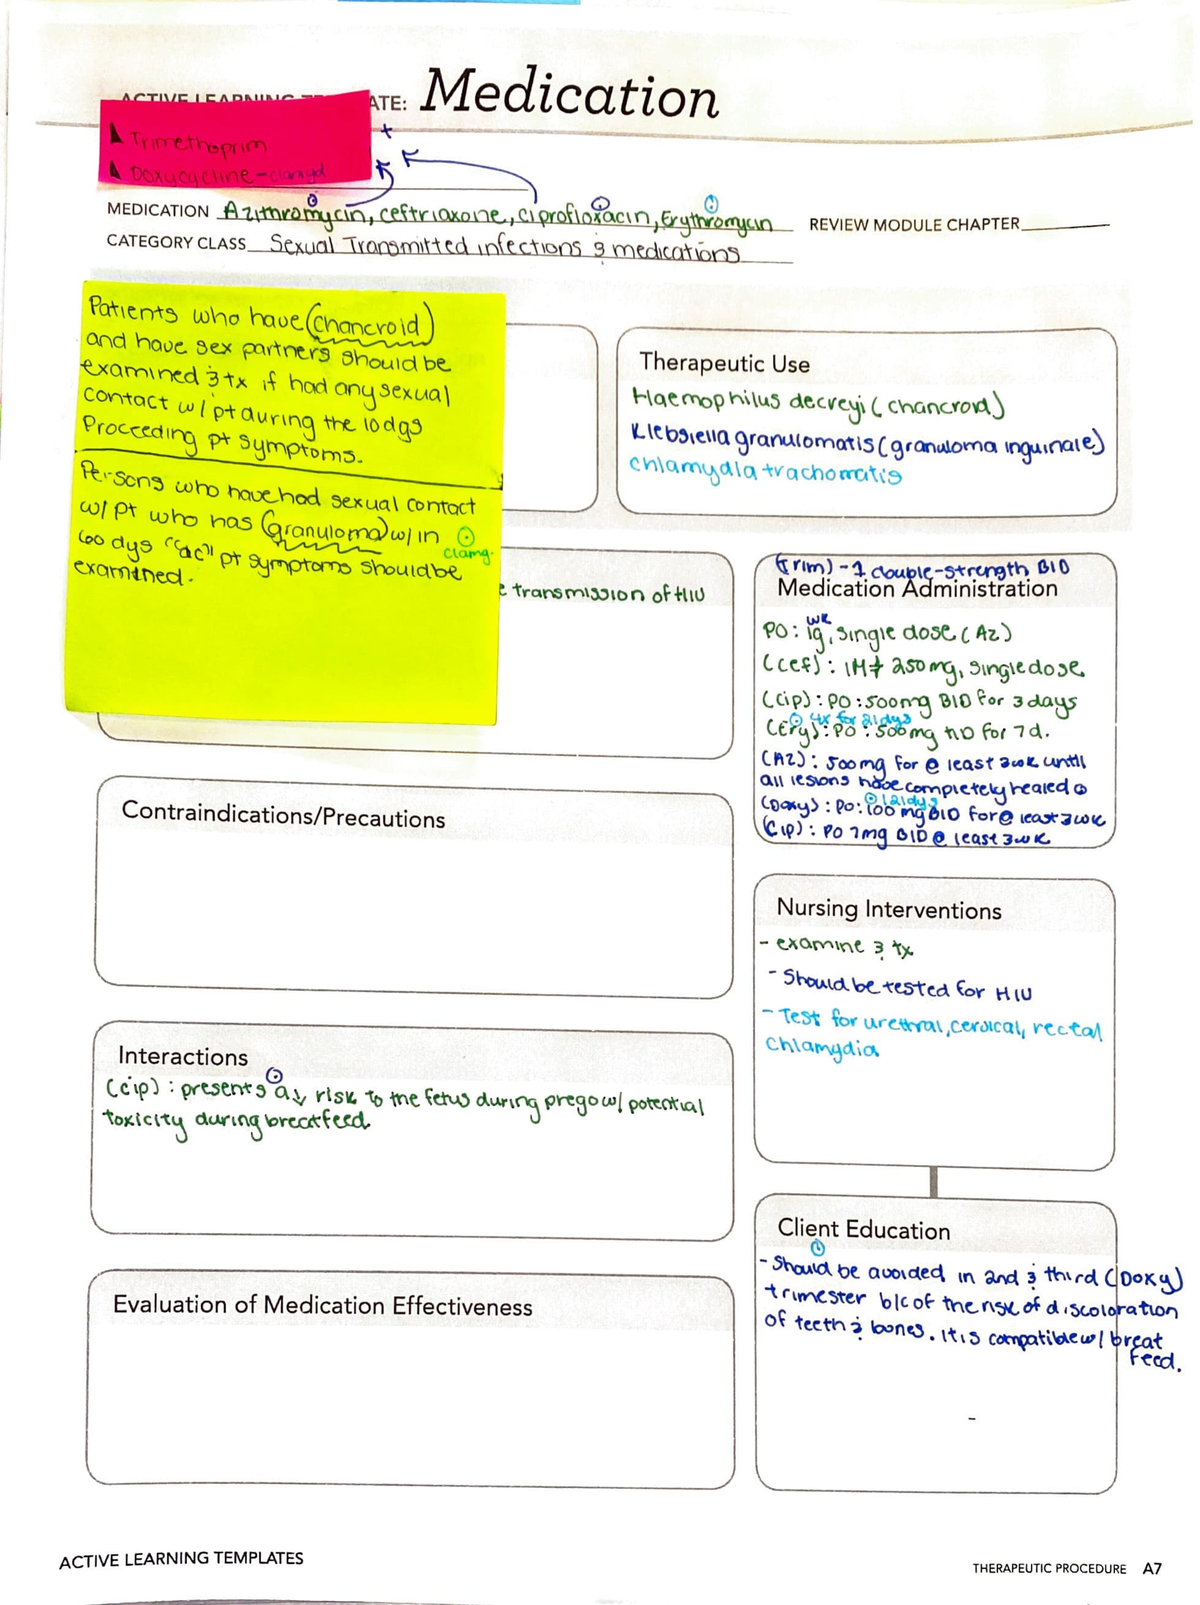 ACTIVE LEARNING TE ATE: Medication
Trimethoprim
Doxycycline-clamyd
+
MEDICATION Azithromycin, ceftriaxone, ciprofloxacin, Erythromycin REVIEW MODULE CHAPTER
CATEGORY CLASS Sexual Transmitted infections & medications
Patients who have (chancroid)
and have sex partners should be
examined & tx if had any sexual
contact w/ pt during the 10 dys
Proceeding pt symptoms.
Persons who have had sexual contact
w/ pt who has (granuloma) w/in
clamy.
60 dys "ac" pt symptoms should be
examined.
Therapeutic Use
Haemophilus decreyi (chancroid)
Klebsiella granulomatis (granuloma inguinale)
chlamydia trachomatis
e transmission of HIV
(Trim) - 1 double-strength BID
Medication Administration
wk
PO: 1g, single dose (AZ)
(cef): IM 250mg, single dose
(cip): PO: 500mg BID for 3 days
4x for 21dys
(Ery): PO: 500mg for 7d.
(AZ): 500mg for @ least 3wk until
all lesions have completely healed
(Doxy): PO: 100 mg BID for @ least 3wk
(Cip): PO 7mg BID @ least 3wk
Contraindications/Precautions
Nursing Interventions
- examine & tx
- Should be tested for HIV
- Test for urethral, cervical, rectal
chlamydia
Interactions
(cip): presents a ↓ risk to the fetus during prego w/ potential
toxicity during breatfeed
Client Education
- Should be avoided in 2nd & third (Doxy)
trimester b/c of the risk of discoloration
of teeth & bones. It is compatible w/ breat
feed.
Evaluation of Medication Effectiveness
ACTIVE LEARNING TEMPLATES
THERAPEUTIC PROCEDURE A7